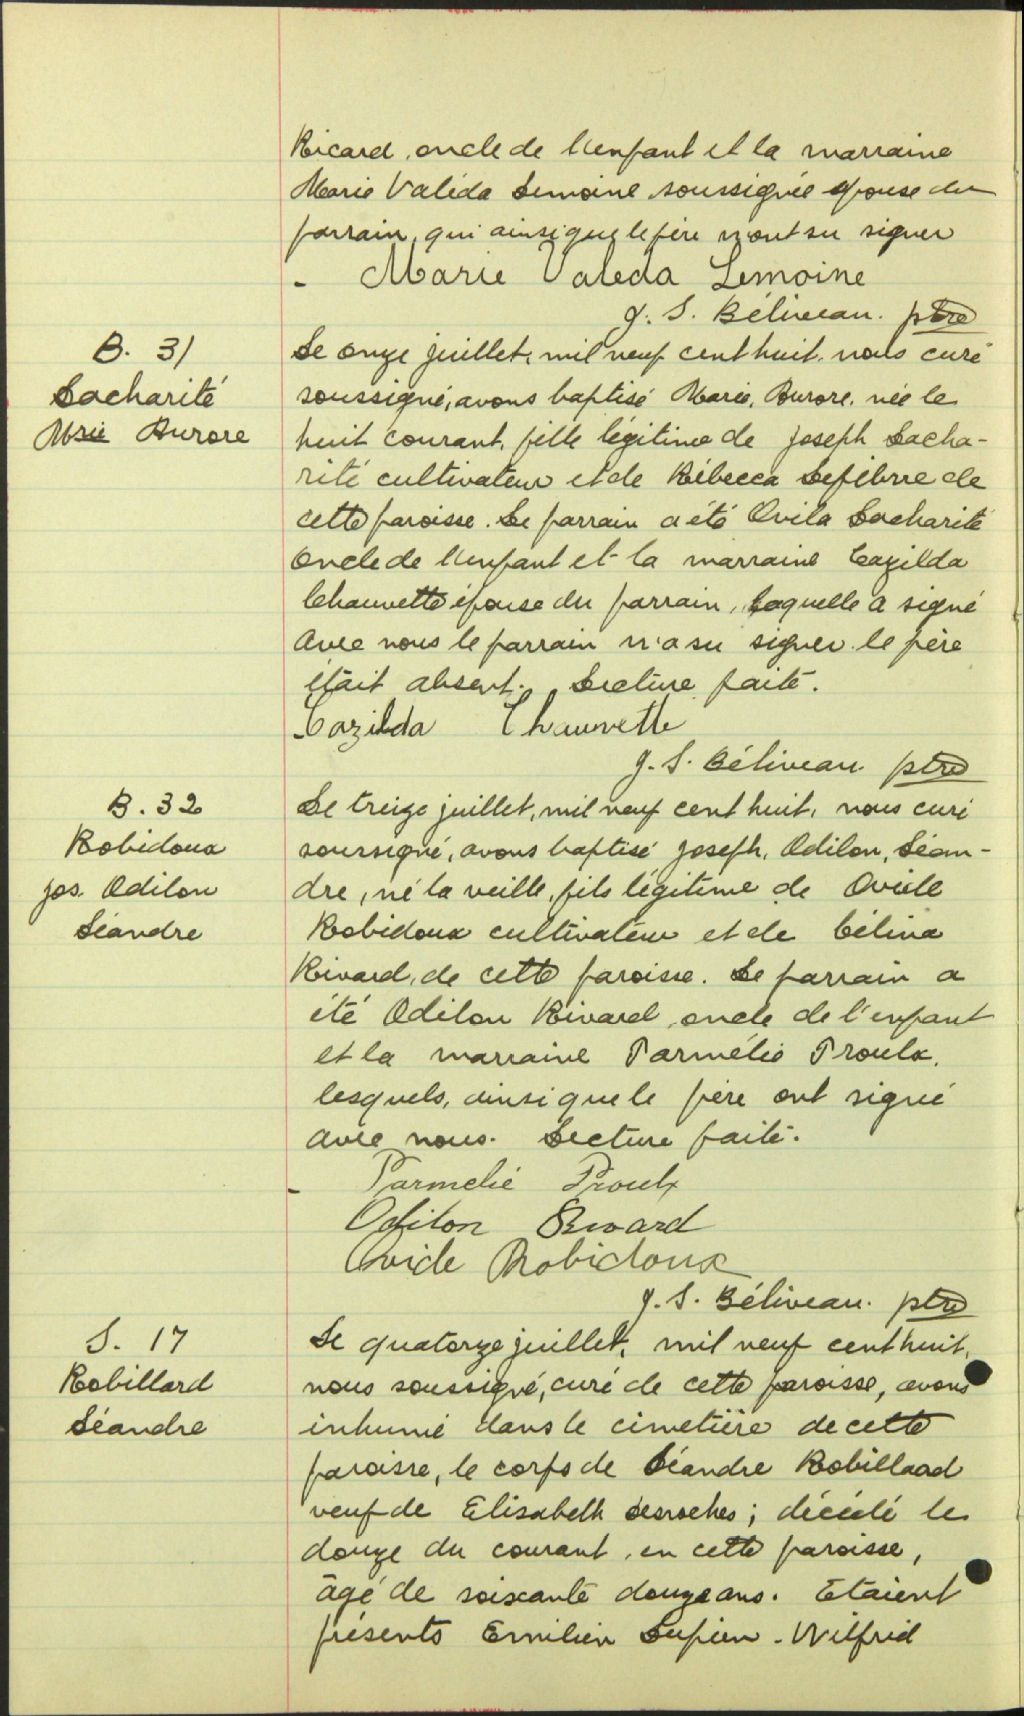 Ricard, oncle de l'enfant et la marraine
Marie Valéda Lemoine soussignée épouse du
parrain, qui ainsi que le père n'ont su signer
- Marie Valeda Lemoine
J. S. Béliveau. ptre
B. 31
Lacharité
Mrie Aurore
Le onze juillet, mil neuf cent huit, nous curé
soussigné, avons baptisé Marie, Aurore, née le
huit courant, fille légitime de Joseph Lacha-
rité cultivateur et de Rébecca Lefebvre de
cette paroisse. Le parrain a été Ovila Lacharité
oncle de l'enfant et la marraine Cazilda
Chauvette épouse du parrain, laquelle a signé
avec nous le parrain n'a su signer le père
était absent. Lecture faite.
Cazilda Chauvette
J. S. Béliveau. ptre
B. 32
Robidoux
Jos. Odilon
Léandre
Le treize juillet, mil neuf cent huit, nous curé
soussigné, avons baptisé Joseph, Odilon, Léan-
dre, né la veille, fils légitime de Ovide
Robidoux cultivateur et de Célina
Rivard, de cette paroisse. Le parrain a
été Odilon Rivard, oncle de l'enfant
et la marraine Parmélie Proulx,
lesquels, ainsi que le père ont signé
avec nous. Lecture faite.
- Parmelie Proulx
Odilon Rivard
Ovide Robidoux
J. S. Béliveau. ptre
S. 17
Robillard
Léandre
Le quatorze juillet, mil neuf cent huit,
nous soussigné, curé de cette paroisse, avons
inhumé dans le cimetière de cette
paroisse, le corps de Léandre Robillaad
veuf de Elisabeth Desroches; décédé le
douze du courant, en cette paroisse,
âgé de soixante douze ans. Etaient
présents Emilien Lupien - Wilfrid